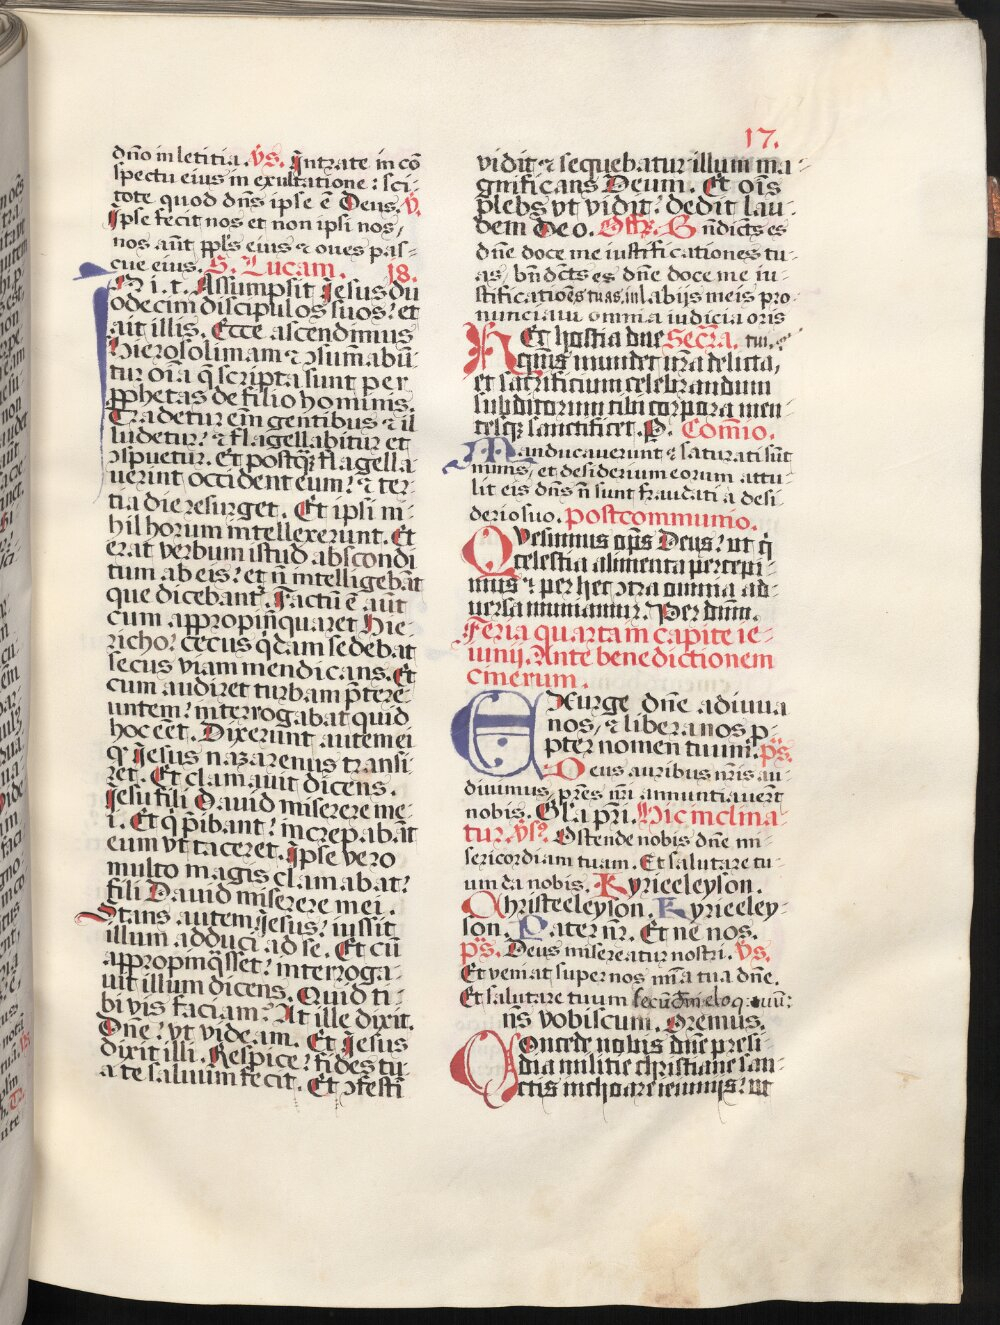 17.
dño in letitia. v̄s. Intrate in cō
spectu eius in exultatione: sci-
tote quod dñs ipse ē Deus. v̄.
Ipse fecit nos et non ipsi nos,
nos aūt ppl̄s eius & oues pas-
cue eius. S. Lucam. 18.
N i. t. Assumpsit Jesus du
odecim discipulos suos: et
ait illis. Ecce ascendimus
hierosolimam & ↄsumabū-
tur oīa q̄ scripta sunt per
pphetas de filio hominis.
Tradetur em̄ gentibus & il
ludetur: & flagellabitur et
ↄspuetur. Et postq̄ flagella
uerint occident eum: & ter-
tia die resurget. Et ipsi ni-
hil horum intellexerunt. Et
erat verbum istud abscondi
tum ab eis: et ñ intelligebāt
que dicebant᷒. Factū ē aūt
cum appropinquaret Hie-
richo: cecus q̄dam sedebat
secus viam mendicans. Et
cum audiret turbam p̄tere-
untem: interrogabat quid
hoc eēt. Dixerunt autem ei
q Jesus nazarenus transi
ret. Et clamauit dicens.
Jesu fili Dauid miserere me-
i. Et q̄ p̄ibant: increpabāt
eum vt taceret. Ipse vero
multo magis clamabat:
fili Dauid miserere mei.
Stans autem Jesus: iussit
illum adduci ad se. Et cū
appropinq̄sset: interroga-
uit illum dicens. Quid ti-
bi vis faciam: At ille dixit.
Dne: vt videam. Et Jesus
dixit illi. Respice: fides tu-
a te saluum fecit. Et ↄfestī
vidit & sequebatur illum ma-
gnificans Deum. Et oīs
plebs vt vidit: dedit lau-
dem Deo. Offr̄. Bndict᷒s es
dñe doce me iustificationes tu-
as, bn̄dct᷒s es dñe doce me iu-
stificatioēs tuas, in labijs meis pro
nunciaui omnia iudicia oris
Ec hostia dñe Secr̄a. tui.
qs̄ mundet nr̄a delicta,
et sacrificium celebrandum
subditorum tibi corpora men-
tesq̄ sanctificet. P. Com̄io.
Manducauerunt & saturati sūt
nimis, et desiderium eorum attu-
lit eis dñs ñ sunt fraudati a desi
derio suo. postcommunio.
Quesumus op̄s Deus: ut q̄
celestia alimenta percepi-
mus: per hec ↄtra omnia ad-
uersa muniamur. Per dn̄m.
Feria quarta in capite ie-
iunij. Ante benedictionem
cinerum.
EXurge dñe adiuua
nos, & libera nos p-
pter nomen tuum. p̄s.
Deus auribus nr̄is au-
diuimus, pr̄es nr̄i annuntiauer̄t
nobis. Gl̄a pr̄i. Hic inclina-
tur. v̄s: Ostende nobis dñe mi-
sericordiam tuam. Et salutare tu-
um da nobis. Kyrieeleyson.
Christeeleyson. Kyrieeley-
son. Pater nr̄. Et ne nos.
p̄s. Deus misereatur nostri. v̄s.
Et veniat super nos mīa tua dñe.
Et salutare tuum secūdm eloq̄tuū:
ns vobiscum. Oremus.
Concede nobis dñe presi-
dia militie christiane san-
ctis inchoare ieiuniis: ut